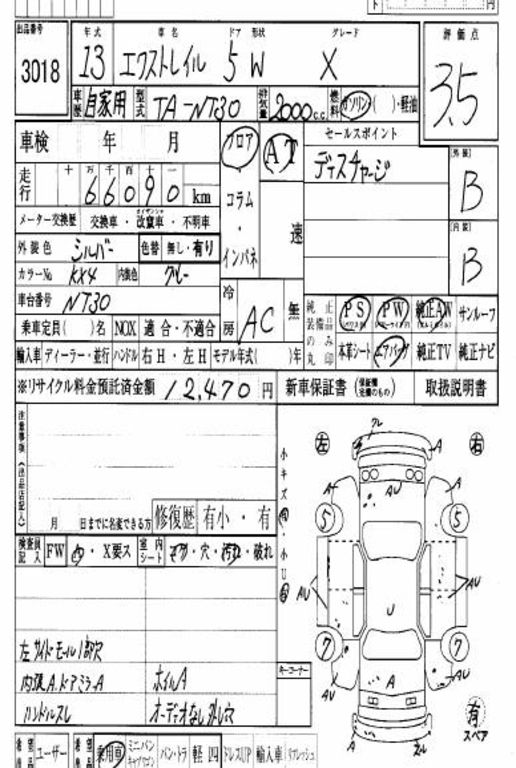 出品番号 年式 車名 ドア 形状 グレード 評価点
3018 13 エクストレイル 5 W X 3.5
車歴 自家用 型式 TA-NT30 排気量 2000 c.c. 燃料 ガソリン( )・軽油
車検 年 月 フロア AT セールスポイント
十 万 千 百 十 一
走行 66090 km コラム 速 ディスチャージ [外装] B
メーター交換歴 交換車・改竄車・不明車 インパネ
外装色 シルバー 色替 無し・有り [内装] B
カラーNo KX4 内装色 グレー
車台番号 NT30 冷房 AC 無 純正装備品のみ丸印 PS PW 純正AW サンルーフ
乗車定員( )名 NOX 適合・不適合 本革シート エアバッグ 純正TV 純正ナビ
輸入車 ディーラー・並行 ハンドル 右H・左H モデル年式( )年
※リサイクル料金預託済金額 12,470 円 新車保証書 (保証欄完備のもの) 取扱説明書
注意事項(出品店記入)
月 日までに名変できる方 修復歴 有小・有
検査員記入 FW 内・X要ス 室内シート コゲ・穴・汚れ・破れ
左サイドモール1部欠
内張A.ドアミラーA ホイルA
ハンドルスレ オーディオなし外し穴
小キズ 小U
キーコーナー
左 右
A A A AU
5 5
AU AU U
7 7
AU A A A
有 スペア
ユーザー 乗用車 ミニバン バン・トラ 軽 四 ドレスUP 輸入車 リフレッシュ